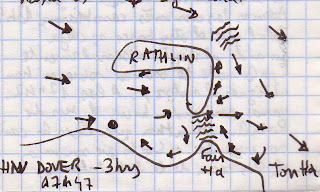 RATHLIN
HW DOVER -3hrs
07h47
Fair
Hd
Torr Hd